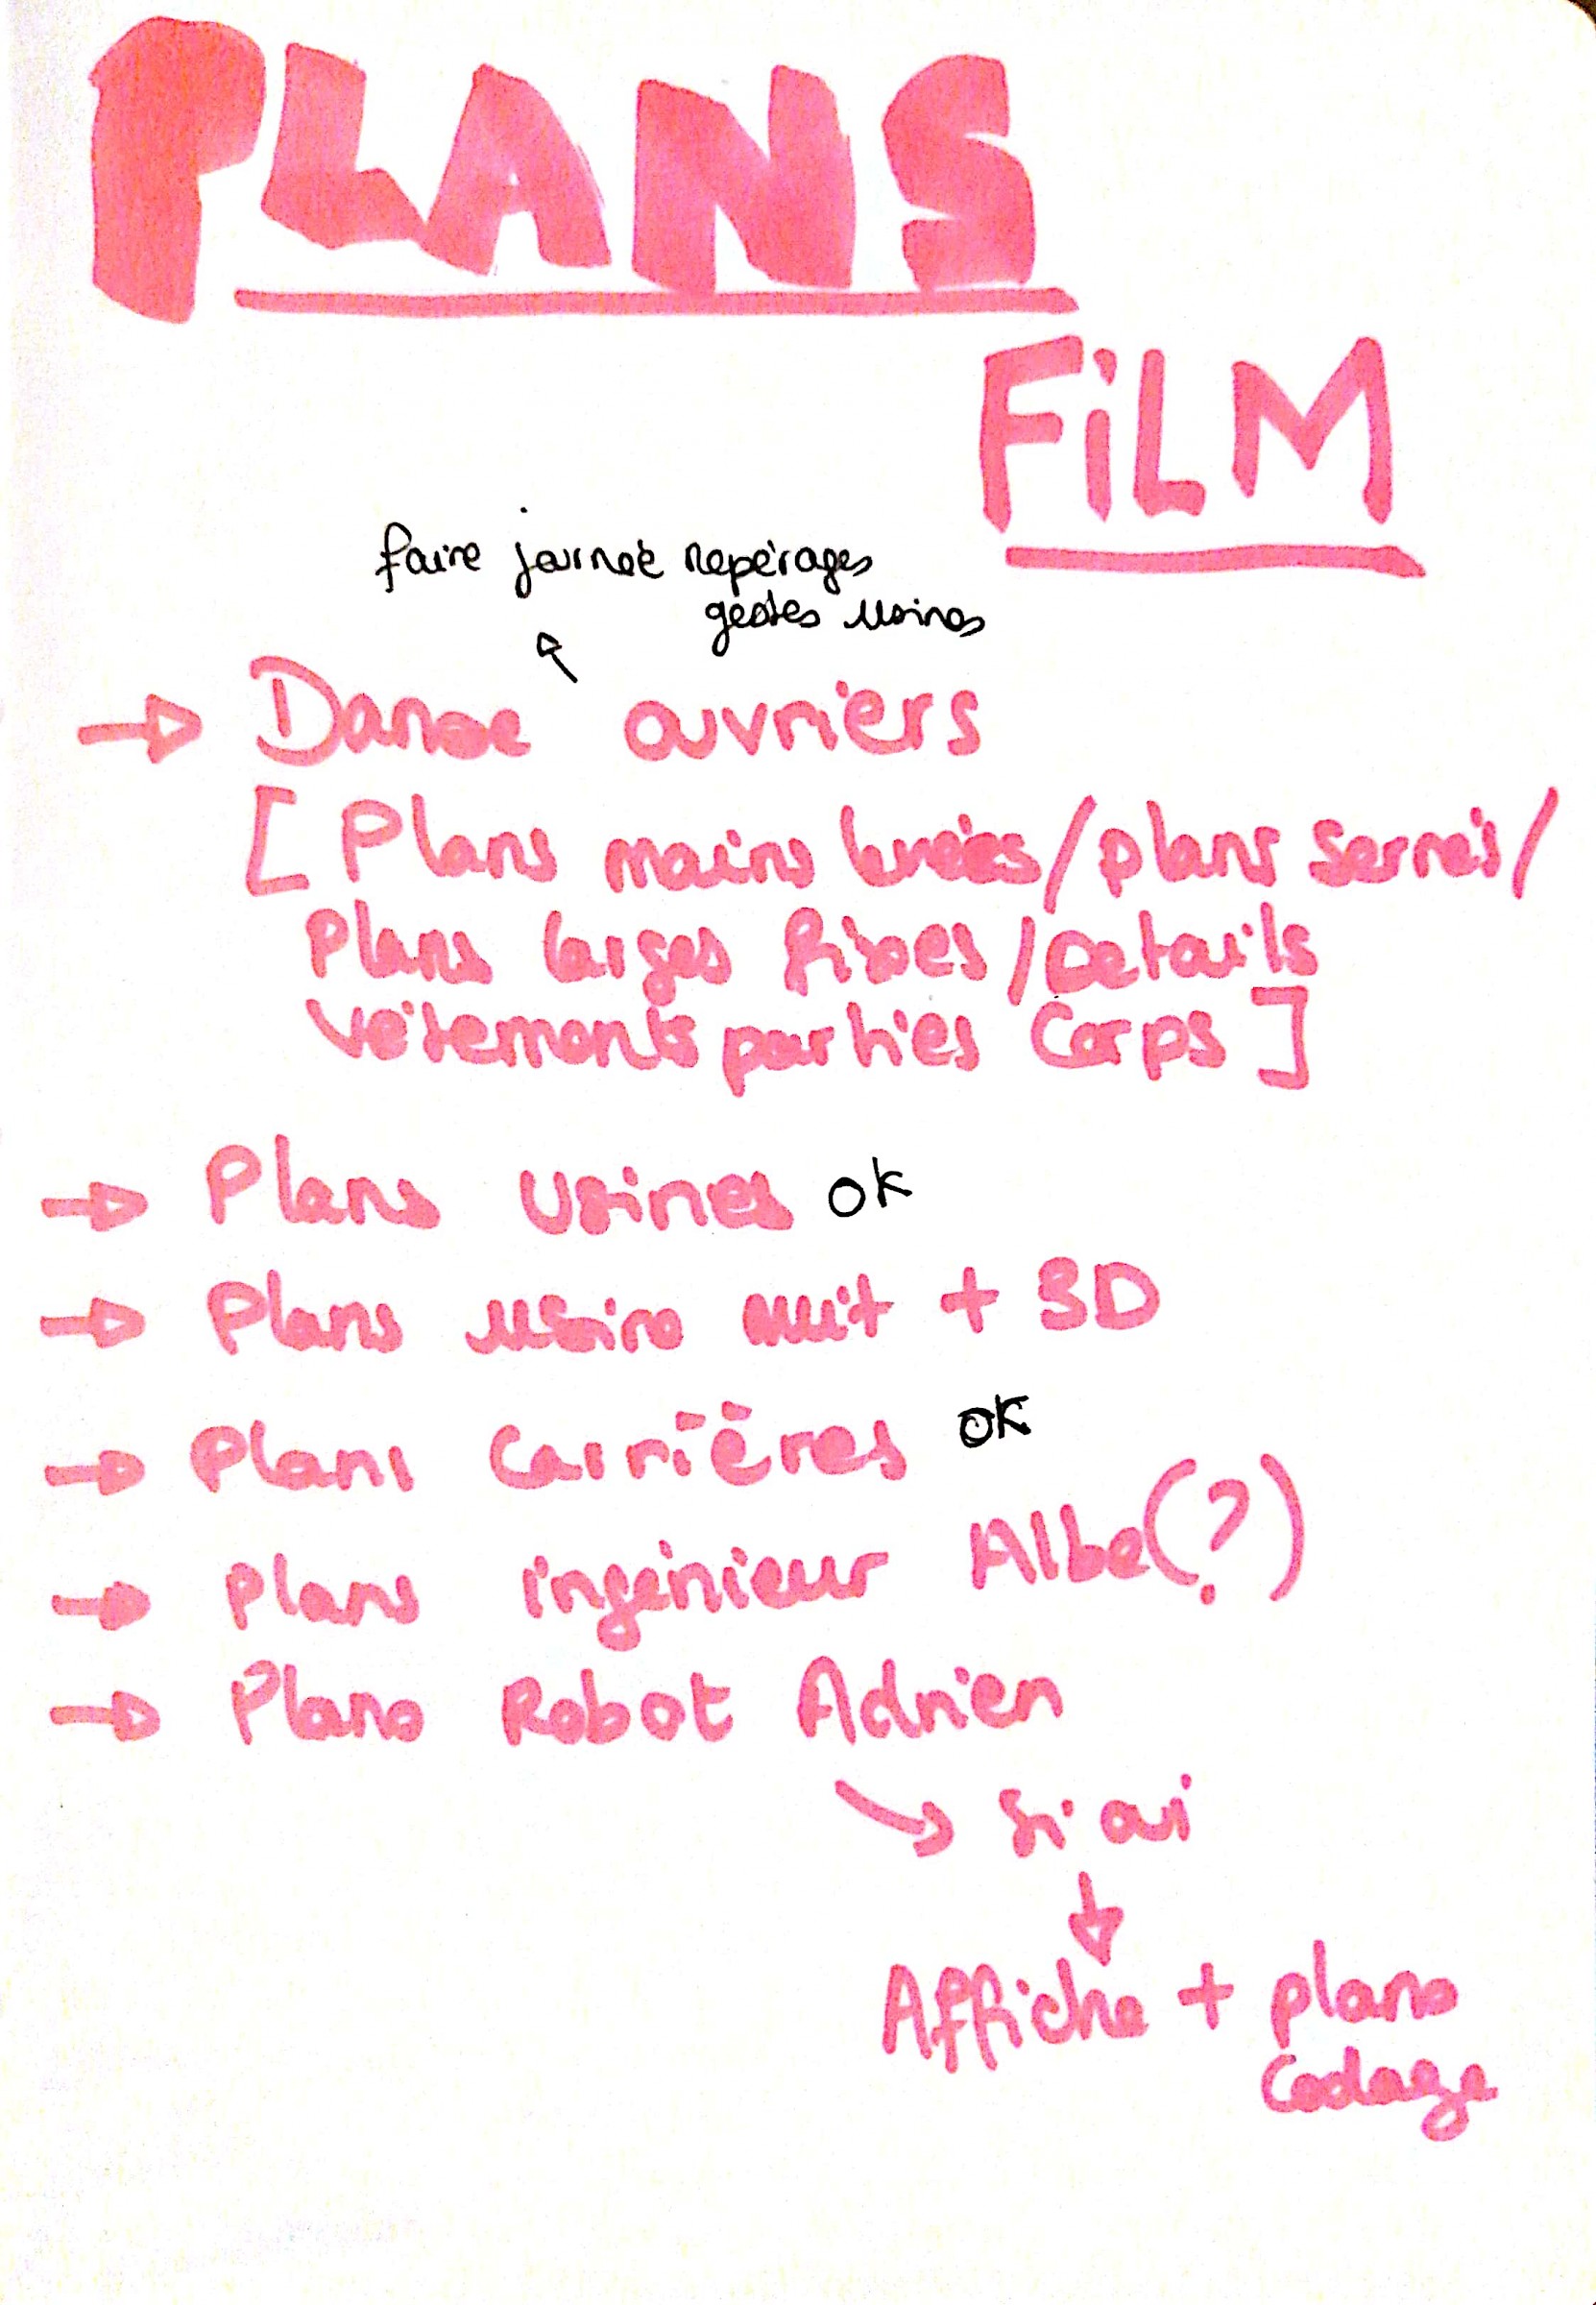 PLANS
FiLM
faire journée repérages
gestes usines
→ Danse ouvriers
[ Plans mains / plans serrés /
Plans larges fixes / Détails
vêtements parties Corps ]
→ Plans usines OK
→ Plans usine nuit + 3D
→ Plans Carrières OK
→ Plans ingénieur Albe(?)
→ Plans Robot Adrien
→ Si oui
Affiche + plans
Codage